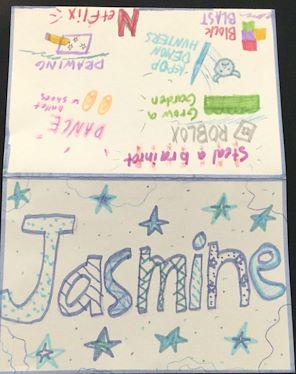 Steal a brainrot
ROBLOX
DANCE
Grow a
Garden
ballet
shoes
KPOP
DEMON
HUNTERS
DRAWING
Block
BLAST
Netflix
Jasmine